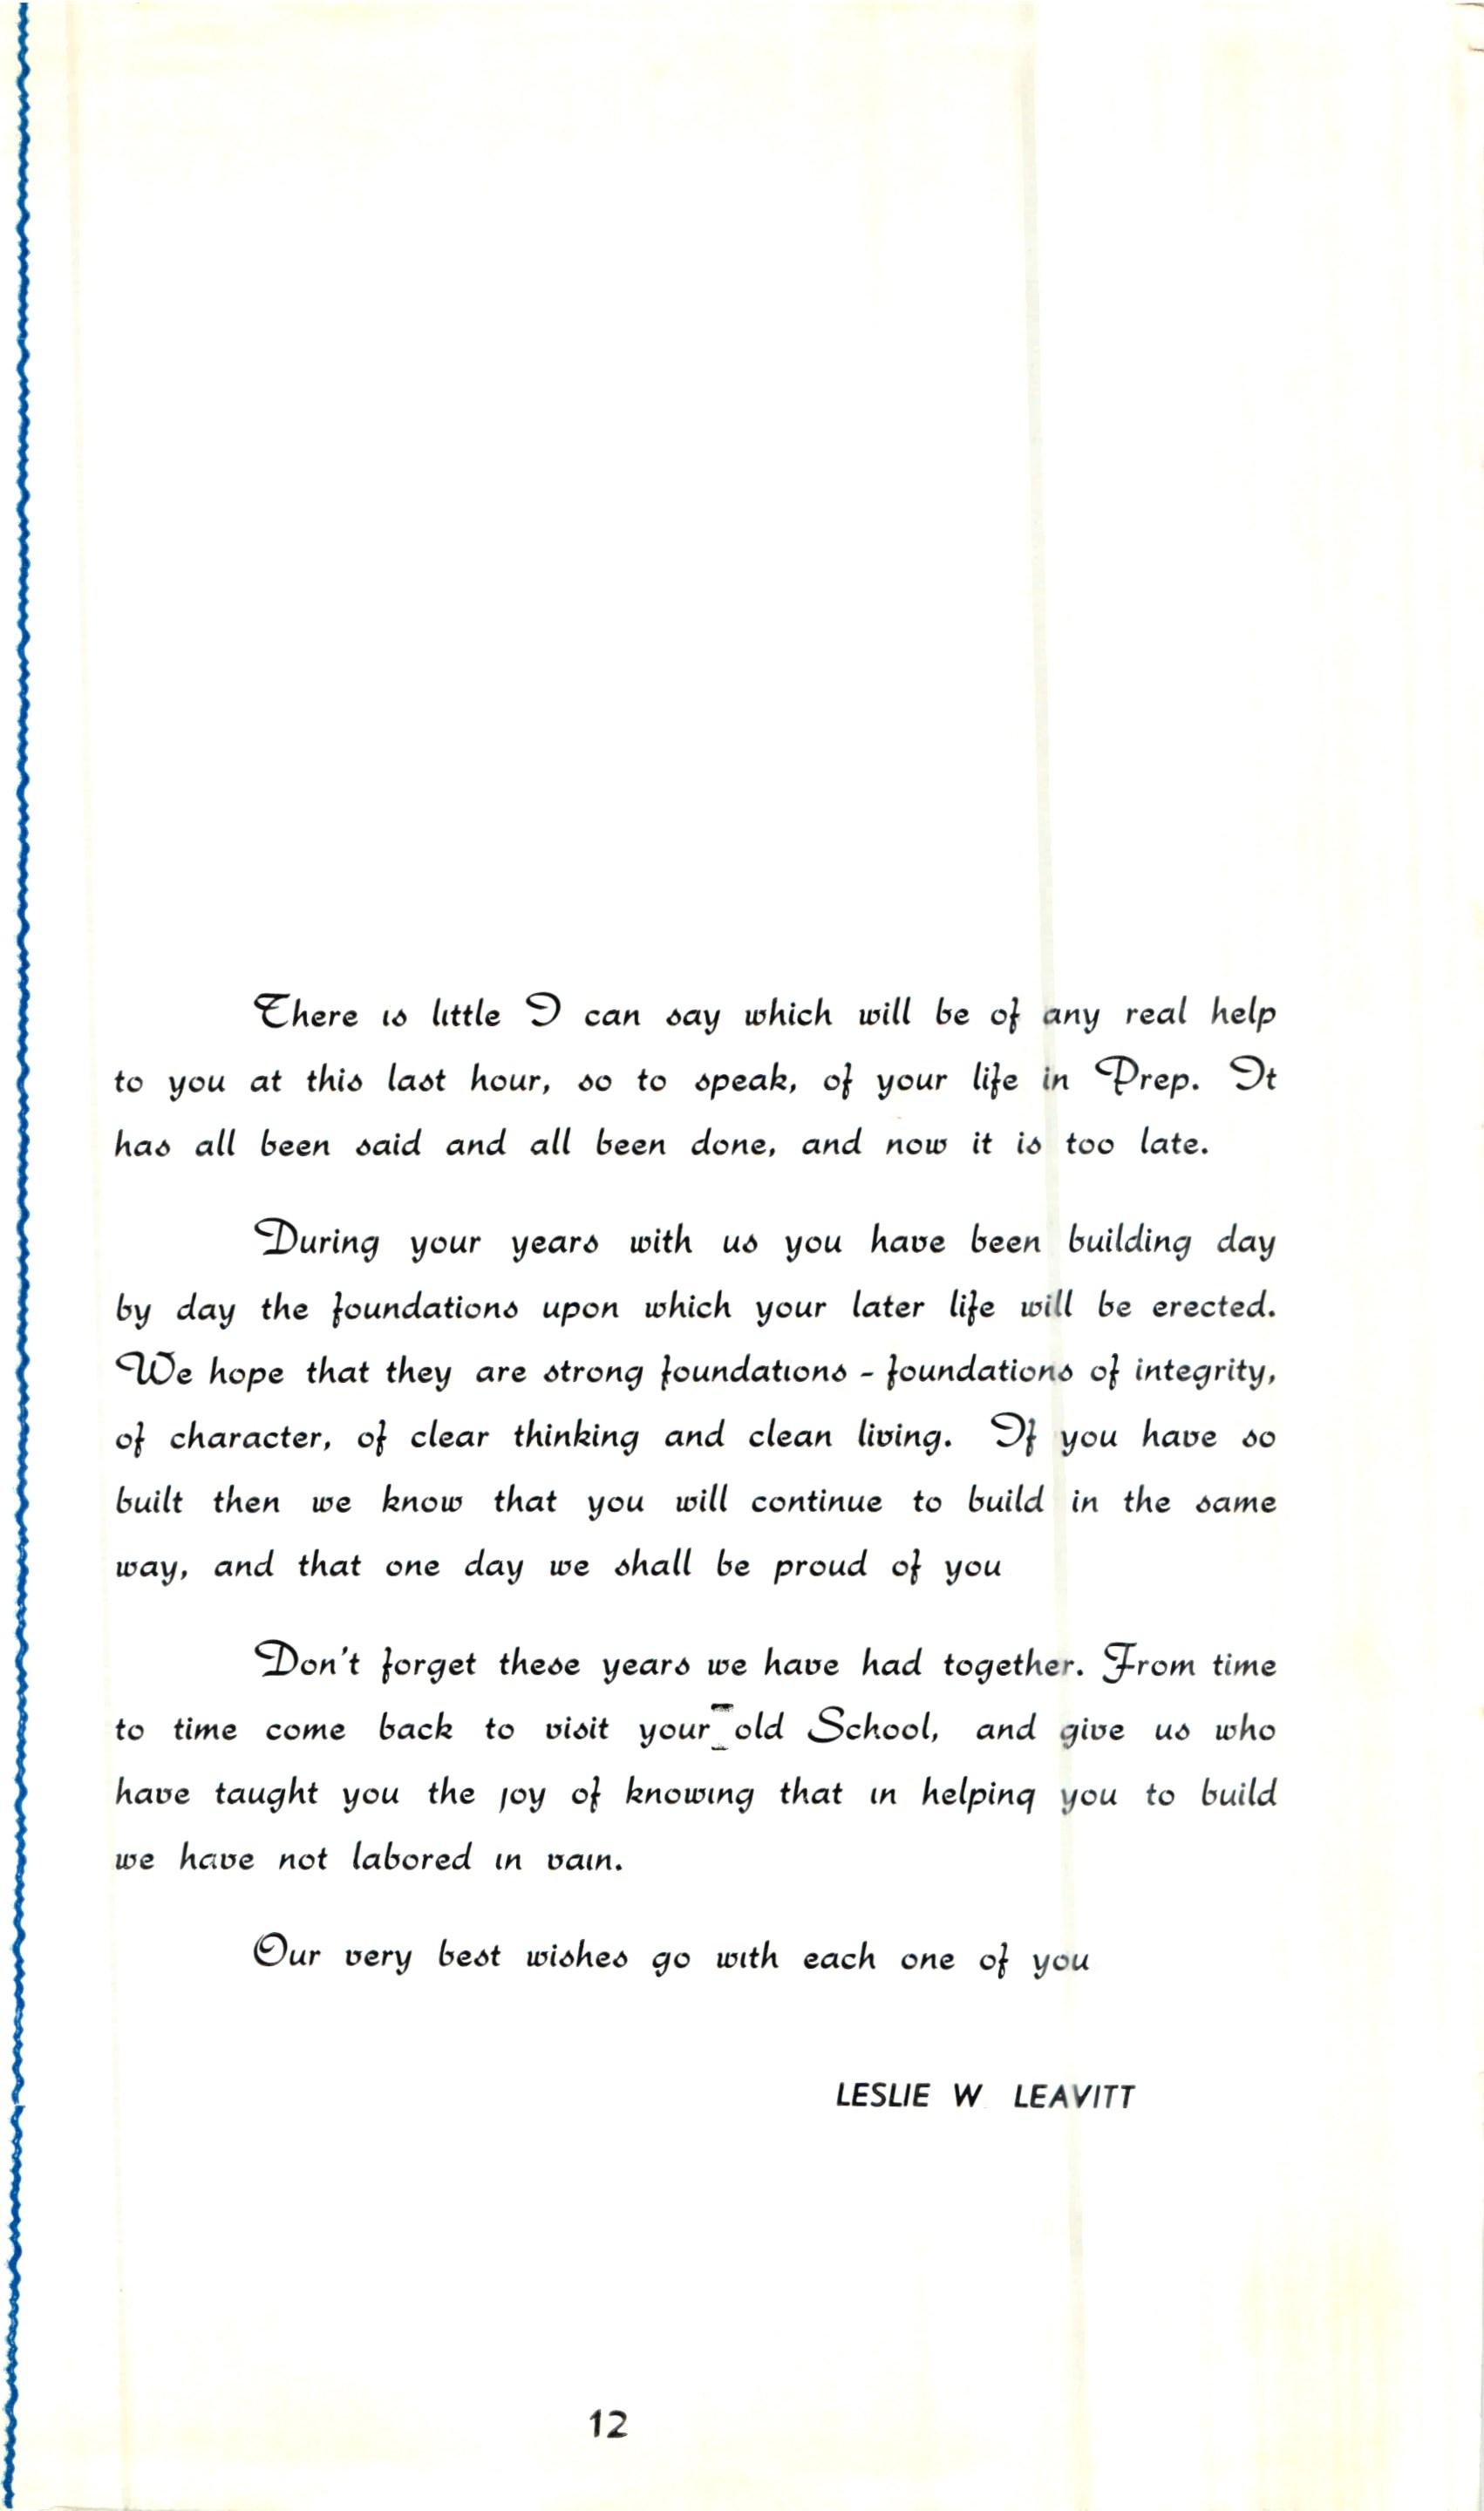 There is little I can say which will be of any real help
to you at this last hour, so to speak, of your life in Prep. It
has all been said and all been done, and now it is too late.
During your years with us you have been building day
by day the foundations upon which your later life will be erected.
We hope that they are strong foundations - foundations of integrity,
of character, of clear thinking and clean living. If you have so
built then we know that you will continue to build in the same
way, and that one day we shall be proud of you
Don't forget these years we have had together. From time
to time come back to visit your old School, and give us who
have taught you the joy of knowing that in helping you to build
we have not labored in vain.
Our very best wishes go with each one of you
LESLIE W LEAVITT
12